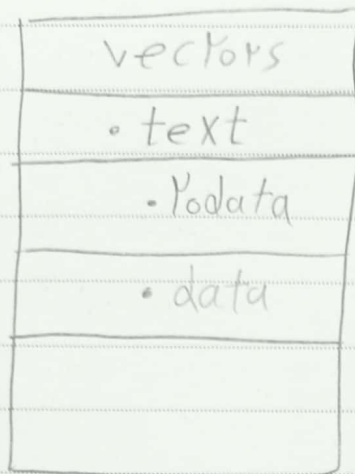 vectors
.text
.rodata
.data